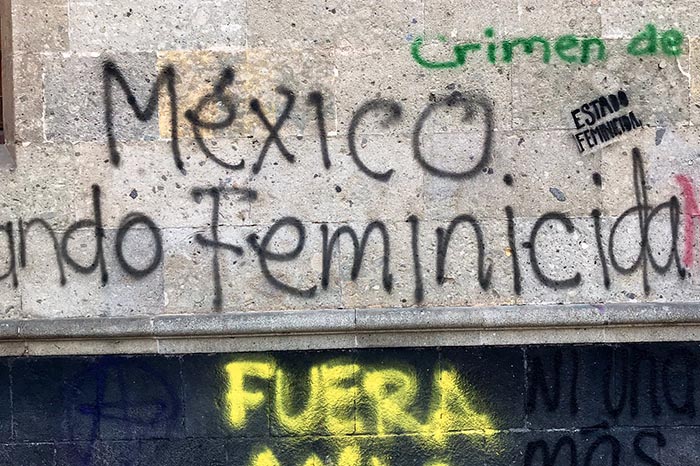 Crimen de
México
ESTADO
FEMINICIDA
ando Feminicida
FUERA
Ni una
más